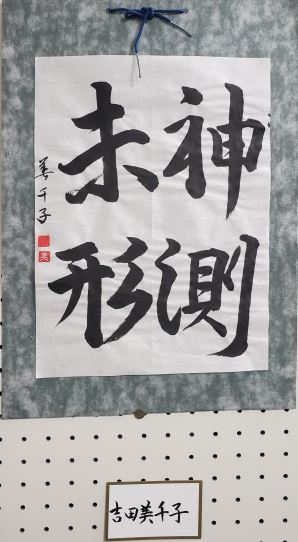 神測
未形
美千子
美
吉田美千子